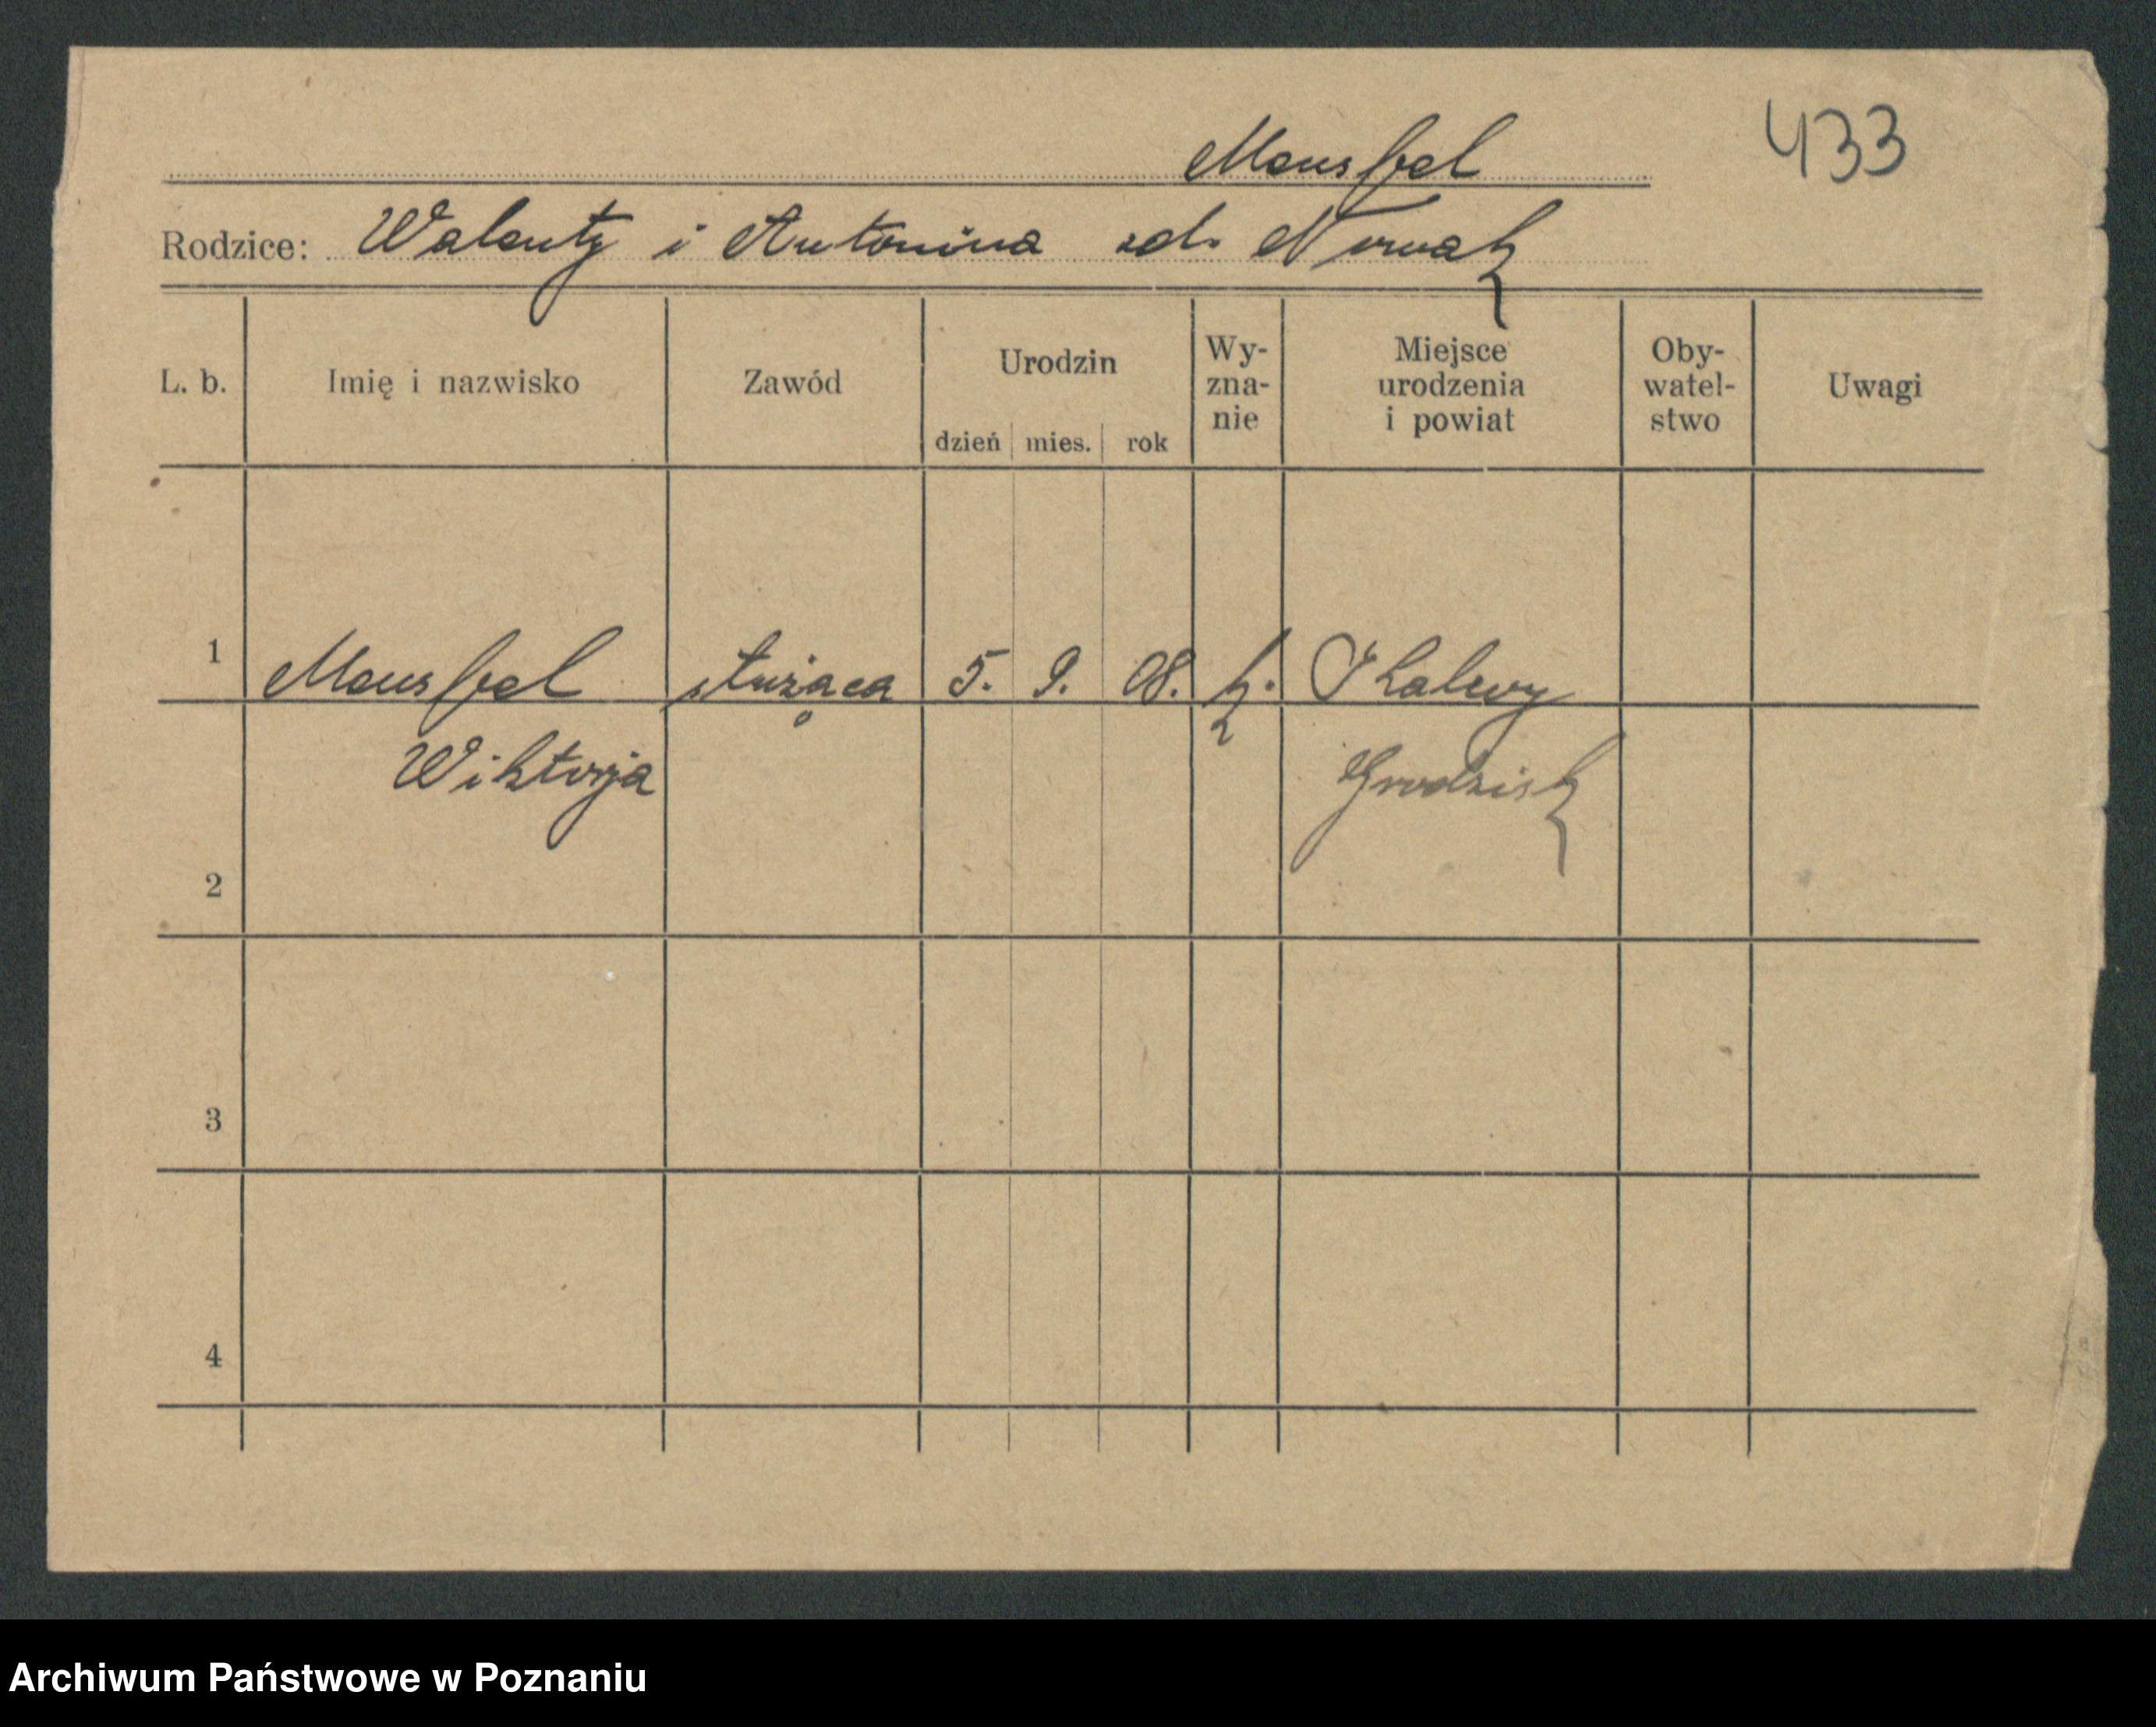 433
Mansfel
Rodzice: Walenty i Antonina zd. Nowak
L. b. Imię i nazwisko Zawód Urodzin dzień mies. rok Wy-zna-nie Miejsce urodzenia i powiat Oby-watel-stwo Uwagi
1 Mansfel służąca 5. 9. 08. k. Ptalewy
Wiktorja Grodzisk
2
3
4
Archiwum Państwowe w Poznaniu